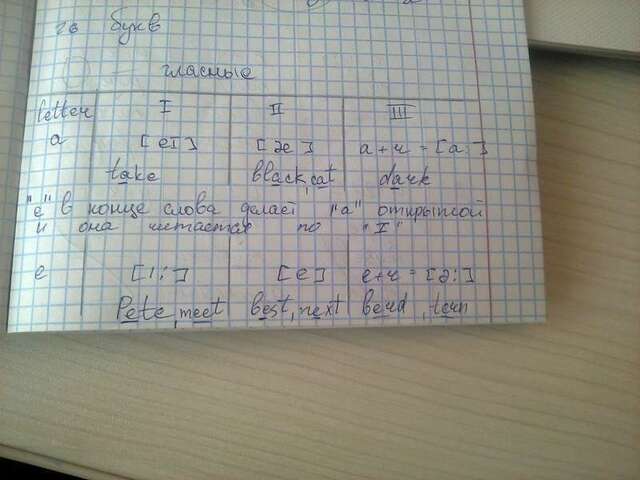 26 букв
гласные
letter I II III
a [eI] [æ] a + r = [a:]
take black, cat dark
"e" в конце слова делает "a" открытой
и она читается по "I"
e [i:] [e] e+r = [ə:]
Pete, meet best, next berd, tern